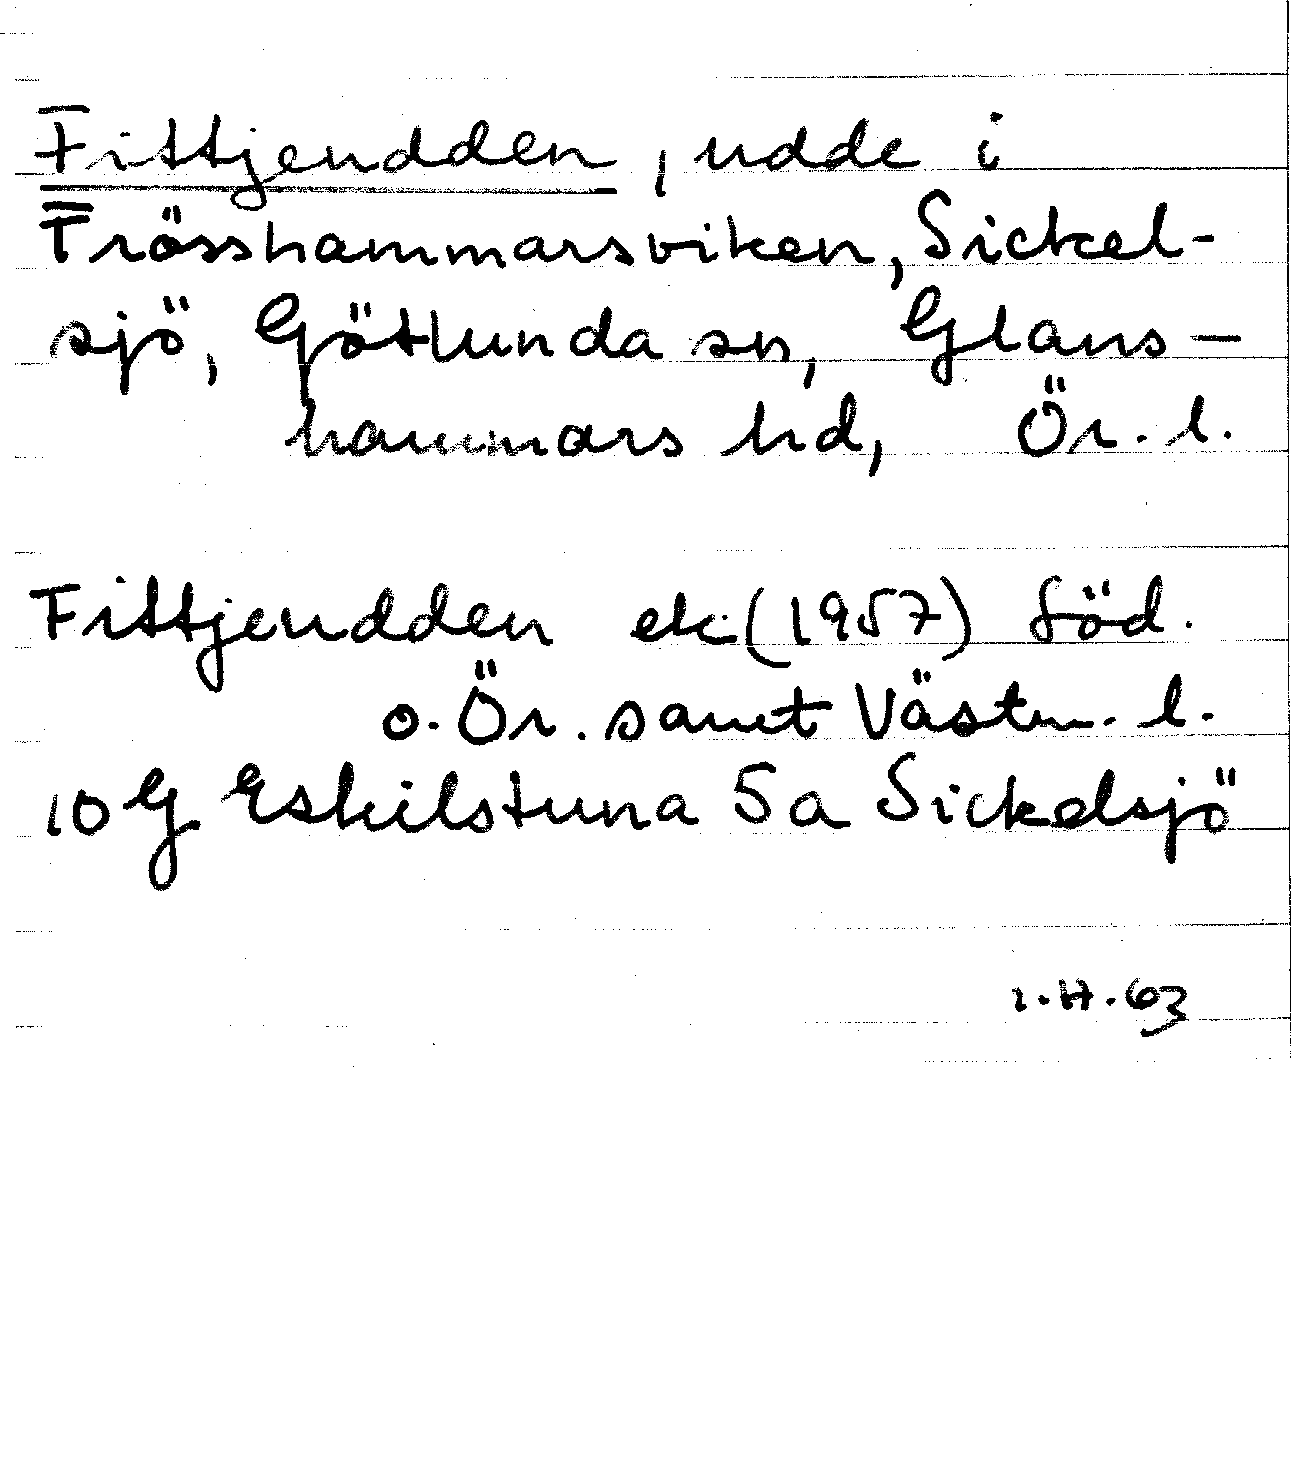 Fittjeudden, udde i
Trösshammarsviken, Sickel-
sjö, Götlunda sn, Glans-
hammars hd, Ör. l.
Fittjeudden ek (1957) Söd.
o. Ör. samt Västm. l.
10 G Eskilstuna 5a Sickelsjö
I.H. 63